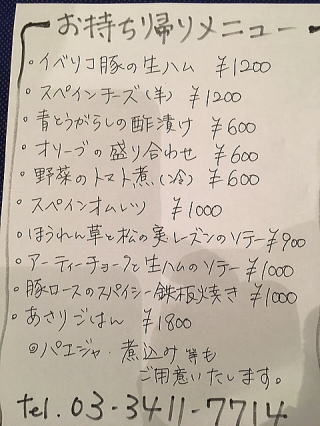 お持ち帰りメニュー
・イベリコ豚の生ハム ¥1200
・スペインチーズ(羊) ¥1200
・青とうがらしの酢漬け ¥600
・オリーブの盛り合わせ ¥600
・野菜のトマト煮(冷) ¥600
・スペインオムレツ ¥1000
・ほうれん草と松の実レーズンのソテー ¥900
・アーティーチョークと生ハムのソテー ¥1000
・豚ロースのスパイシー鉄板焼き ¥1000
・あさりごはん ¥1800
◎パエジャ・煮込み等も
ご用意いたします。
tel. 03-3411-7714